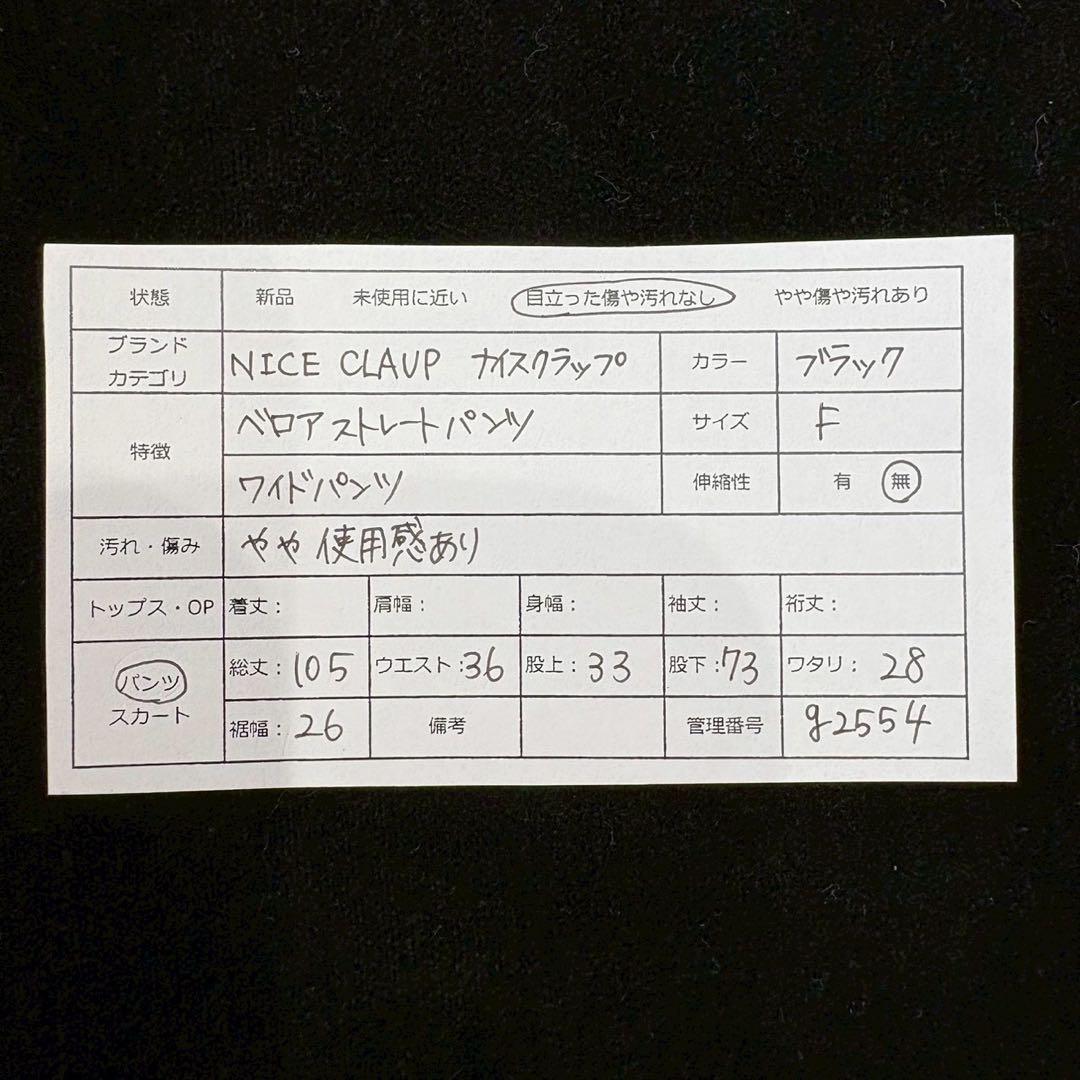 状態 新品 未使用に近い 目立った傷や汚れなし やや傷や汚れあり
ブランド
カテゴリ
NICE CLAUP ナイスクラップ カラー ブラック
特徴
ベロアストレートパンツ サイズ F
ワイドパンツ 伸縮性 有 無
汚れ・傷み やや使用感あり
トップス・OP 着丈: 肩幅: 身幅: 袖丈: 裄丈:
パンツ
スカート
総丈:105 ウエスト:36 股上:33 股下:73 ワタリ:28
裾幅:26 備考 管理番号 g2554